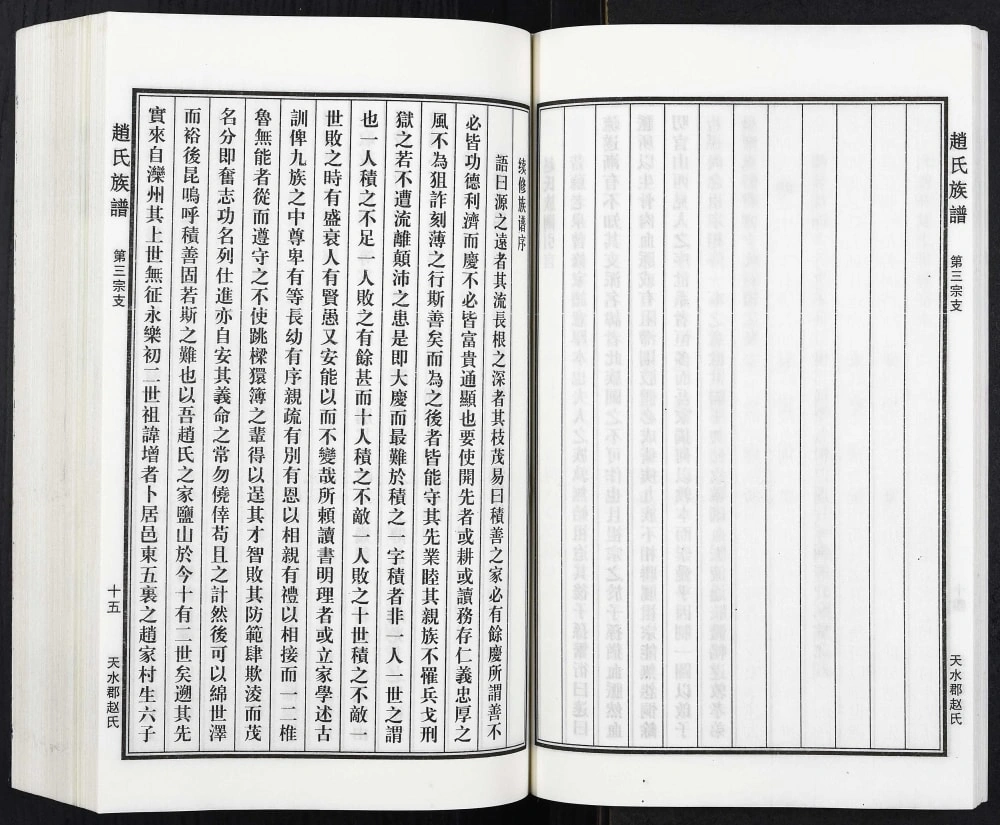 趙氏族譜
第三宗支
天水郡赵氏
续修族谱序
語曰源之遠者其流長根之深者其枝茂易曰積善之家必有餘慶所謂善不
必皆功德利濟而慶不必皆富貴通顯也要使開先者或耕或讀務存仁義忠厚之
風不為狙詐刻薄之行斯善矣而為之後者皆能守其先業睦其親族不罹兵戈刑
獄之若不遭流離顛沛之患是即大慶而最難於積之一字積者非一人一世之謂
也一人積之不足一人敗之有餘甚而十人積之不敵一人敗之十世積之不敵一
世敗之時有盛衰人有賢愚又安能以而不變哉所賴讀書明理者或立家學述古
訓俾九族之中尊卑有等長幼有序親疏有別有恩以相親有禮以相接而一二椎
魯無能者從而遵守之不使跳樑獧簿之輩得以逞其才智敗其防範肆欺淩而茂
名分即奮志功名列仕進亦自安其義命之常勿僥倖苟且之計然後可以綿世澤
而裕後昆嗚呼積善固若斯之難也以吾趙氏之家鹽山於今十有二世矣遡其先
實來自灤州其上世無征永樂初二世祖諱增者卜居邑東五裏之趙家村生六子
趙氏族譜
第三宗支
十五
天水郡赵氏